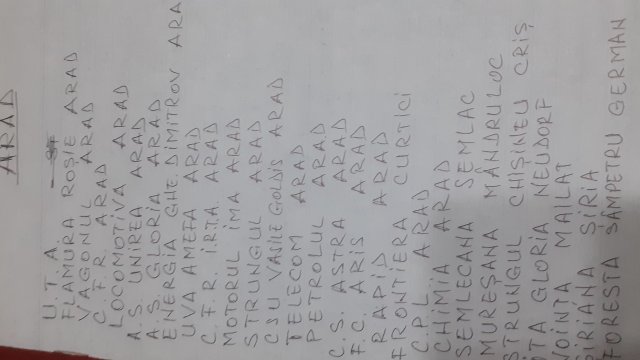 ARAD
U.T.A.
FLAMURA ROȘIE ARAD
VAGONUL ARAD
C.F.R. ARAD
LOCOMOTIVA ARAD
A.S. UNIREA ARAD
A.S. GLORIA ARAD
ENERGIA GHE. DIMITROV ARA
UVA AMEFA ARAD
C.F.R. IRTA ARAD
MOTORUL IMA ARAD
STRUNGUL ARAD
CSU VASILE GOLDIȘ ARAD
TELECOM ARAD
PETROLUL ARAD
C.S. ASTRA ARAD
F.C. ARIS ARAD
RAPID ARAD
FRONTIERA CURTICI
CPL ARAD
CHIMIA ARAD
SEMLECANA SEMLAC
MUREȘANA MÂNDRULOC
STRUNGUL CHIȘINEU CRIȘ
GLORIA NEUDORF
MAILAT
ȘIRIANA ȘIRIA
FORESTA SÂMPETRU GERMAN